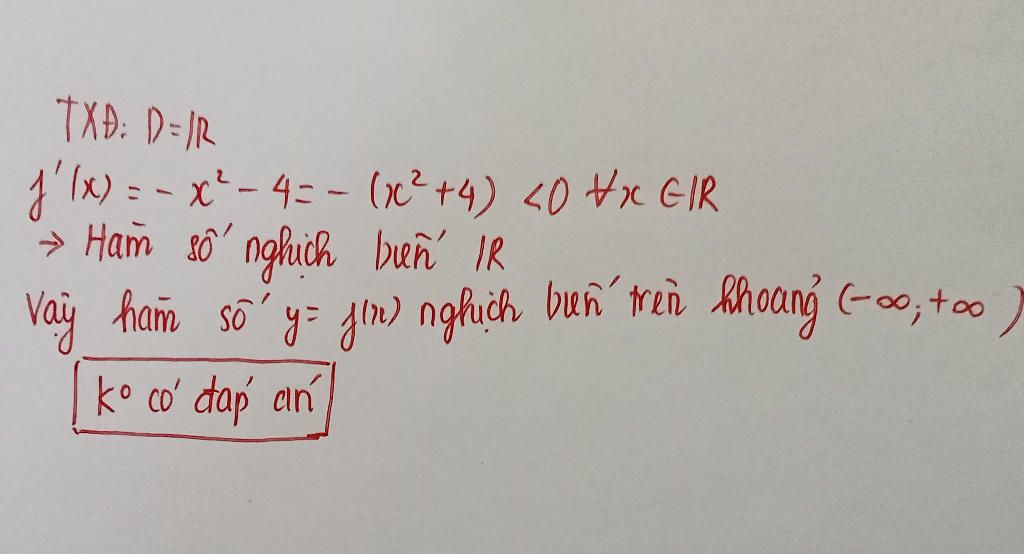 TXĐ: D=ℝ
f'(x) = - x² - 4 = - (x² + 4) < 0 ∀x ∈ ℝ
→ Hàm số nghịch biến ℝ
Vậy hàm số y = f(x) nghịch biến trên khoảng (-∞; +∞)
k° có đáp án